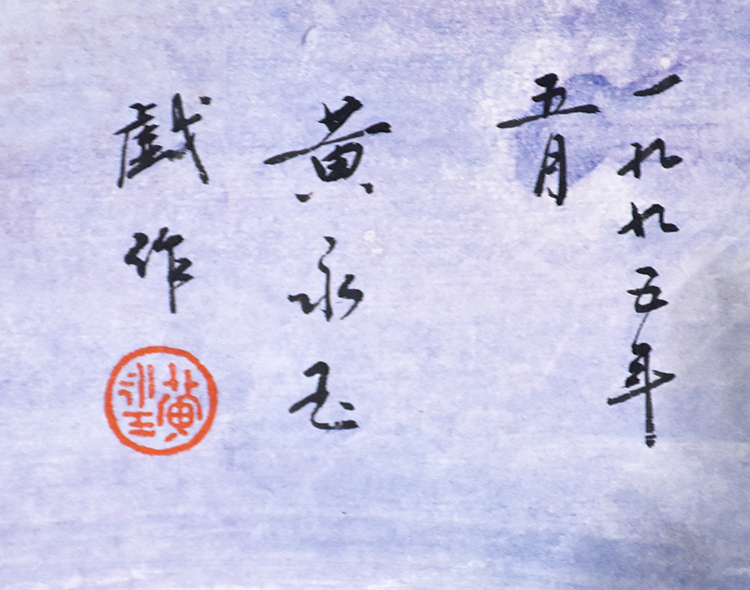 一九九五年
五月
黄永玉
戲作
黄永玉